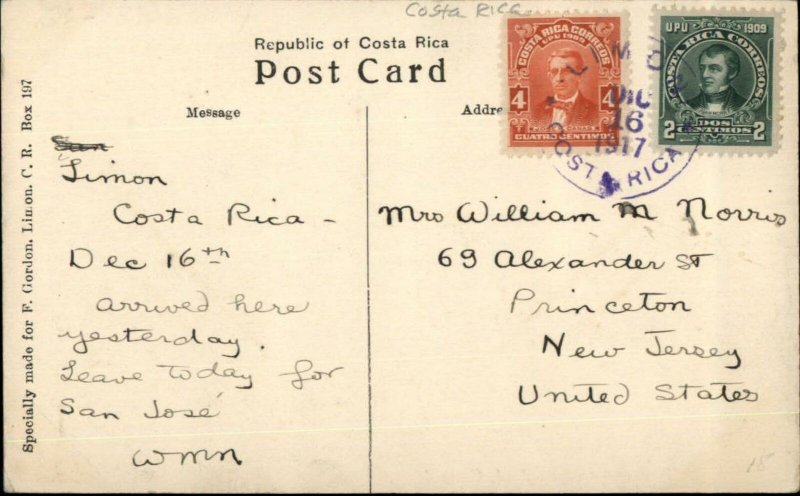 Costa Rica
Republic of Costa Rica
Post Card
Message
Addre
Specially made for F. Gordon, Limon, C. R. Box 197
COSTA RICA CORREOS
UPU 1909
4 4
CUATRO CENTIMOS
UPU 1909
COSTA RICA CORREOS
2 DOS CENTIMOS 2
LIMON
DIC
16
1917
COSTA RICA
San
Limon
Costa Rica -
Dec 16th
arrived here
yesterday.
Leave today for
San José
WMN
Mrs William M Norris
69 Alexander St
Princeton
New Jersey
United States
15